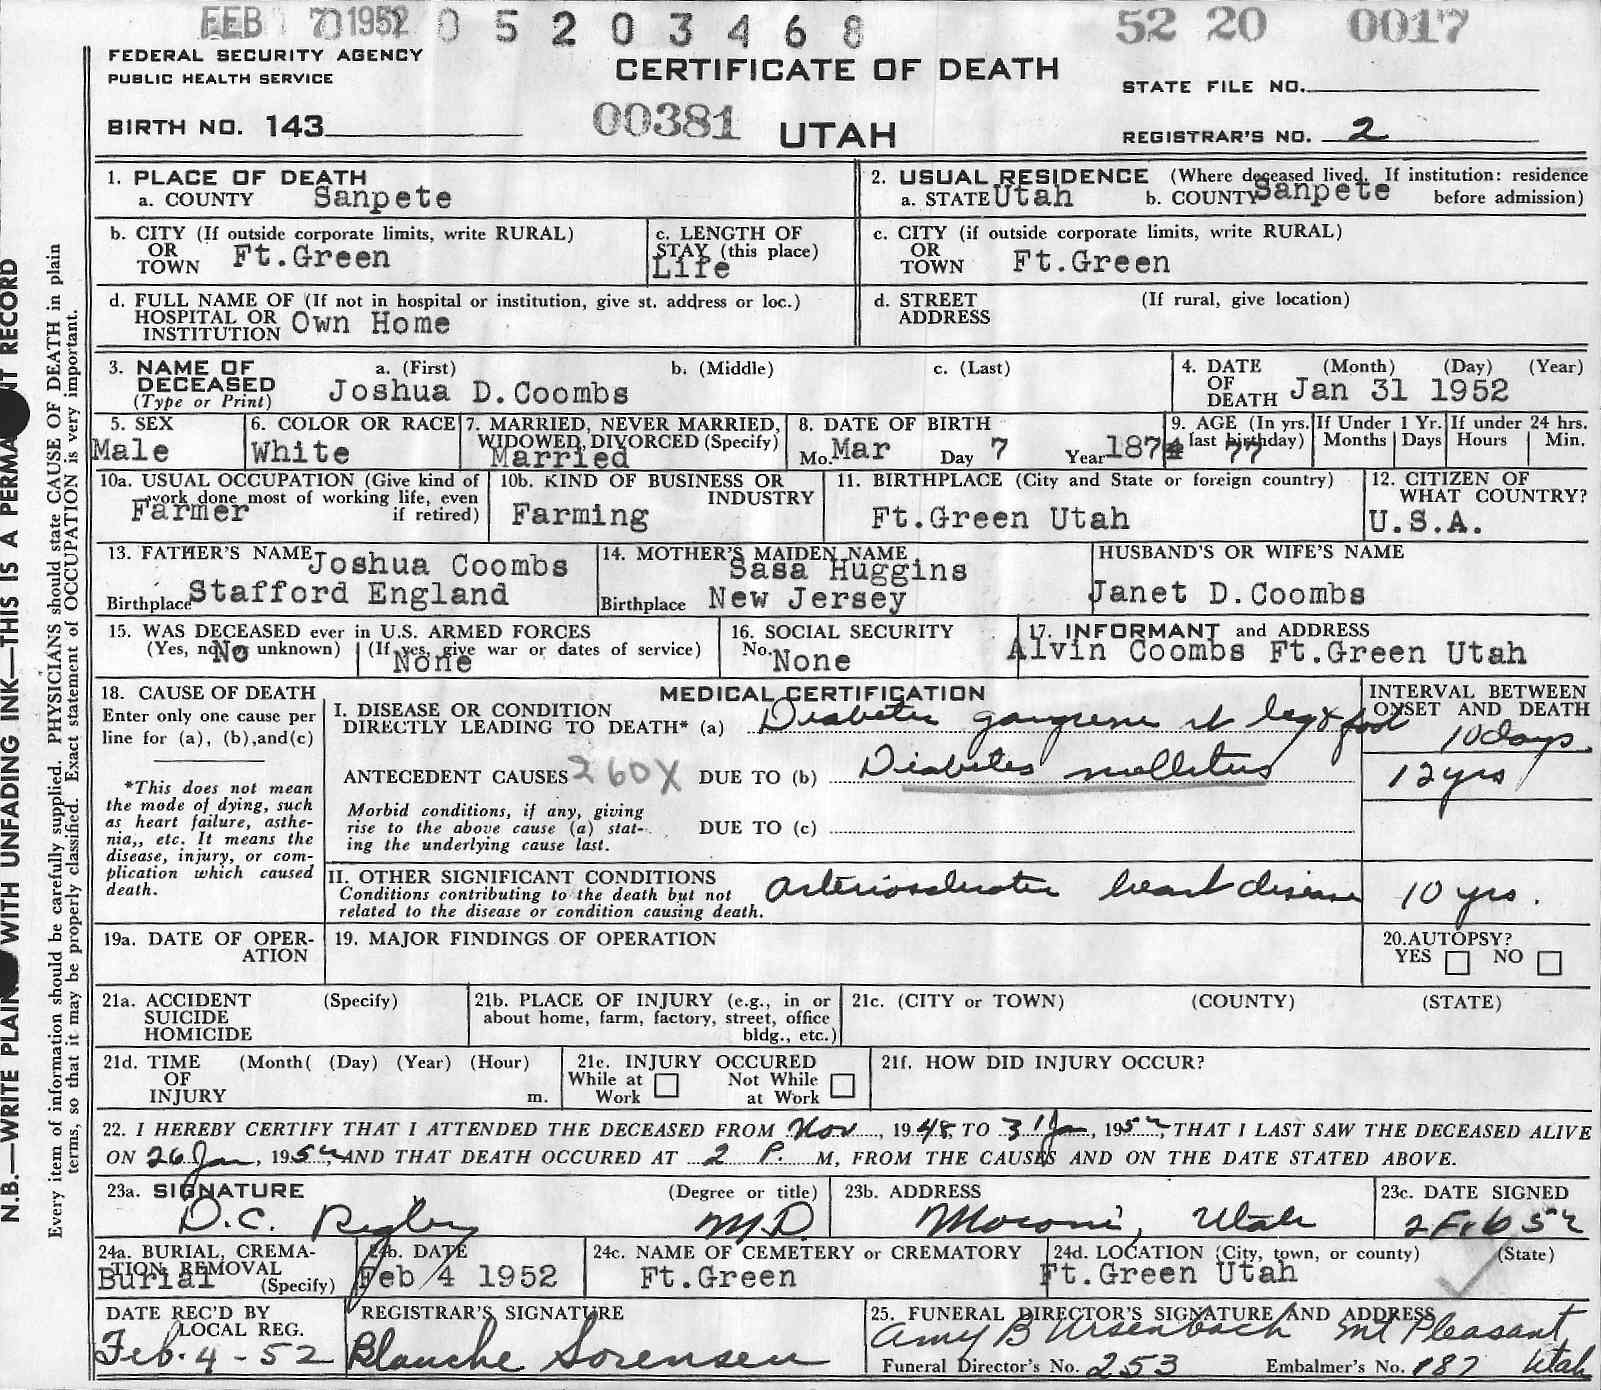 FEB 7 1952 0 5 2 0 3 4 6 8 52 20 0017
FEDERAL SECURITY AGENCY
PUBLIC HEALTH SERVICE
CERTIFICATE OF DEATH
STATE FILE NO.
BIRTH NO. 143 00381 UTAH REGISTRAR'S NO. 2
1. PLACE OF DEATH
a. COUNTY Sanpete
2. USUAL RESIDENCE (Where deceased lived. If institution: residence
a. STATE Utah b. COUNTY Sanpete before admission)
b. CITY (If outside corporate limits, write RURAL)
OR
TOWN Ft.Green
c. LENGTH OF
STAY (this place)
Life
c. CITY (if outside corporate limits, write RURAL)
OR
TOWN Ft.Green
d. FULL NAME OF (If not in hospital or institution, give st. address or loc.)
HOSPITAL OR
INSTITUTION Own Home
d. STREET (If rural, give location)
ADDRESS
3. NAME OF a. (First) b. (Middle) c. (Last)
DECEASED
(Type or Print) Joshua D.Coombs
4. DATE (Month) (Day) (Year)
OF
DEATH Jan 31 1952
5. SEX
Male
6. COLOR OR RACE
White
7. MARRIED, NEVER MARRIED,
WIDOWED, DIVORCED (Specify)
Married
8. DATE OF BIRTH
Mo. Mar Day 7 Year 1874
9. AGE (In yrs. last birthday)
77
If Under 1 Yr.
Months Days
If under 24 hrs.
Hours Min.
10a. USUAL OCCUPATION (Give kind of
work done most of working life, even
if retired)
Farmer
10b. KIND OF BUSINESS OR
INDUSTRY
Farming
11. BIRTHPLACE (City and State or foreign country)
Ft.Green Utah
12. CITIZEN OF
WHAT COUNTRY?
U.S.A.
13. FATHER'S NAME Joshua Coombs
Birthplace Stafford England
14. MOTHER'S MAIDEN NAME
Sasa Huggins
Birthplace New Jersey
HUSBAND'S OR WIFE'S NAME
Janet D.Coombs
15. WAS DECEASED ever in U.S. ARMED FORCES
(Yes, no, or unknown) No (If yes, give war or dates of service)
None
16. SOCIAL SECURITY
No. None
17. INFORMANT and ADDRESS
Alvin Coombs Ft.Green Utah
18. CAUSE OF DEATH
Enter only one cause per
line for (a), (b),and(c)
*This does not mean
the mode of dying, such
as heart failure, asthe-
nia,, etc. It means the
disease, injury, or com-
plication which caused
death.
MEDICAL CERTIFICATION
I. DISEASE OR CONDITION
DIRECTLY LEADING TO DEATH* (a) Diabetic gangrene rt leg & foot
INTERVAL BETWEEN
ONSET AND DEATH
10 days
ANTECEDENT CAUSES 260X DUE TO (b) Diabetes mellitus 12 yrs
Morbid conditions, if any, giving
rise to the above cause (a) stat-
ing the underlying cause last.
DUE TO (c)
II. OTHER SIGNIFICANT CONDITIONS
Conditions contributing to the death but not
related to the disease or condition causing death.
Arteriosclerotic heart disease 10 yrs.
19a. DATE OF OPER-
ATION
19. MAJOR FINDINGS OF OPERATION
20.AUTOPSY?
YES NO
21a. ACCIDENT (Specify)
SUICIDE
HOMICIDE
21b. PLACE OF INJURY (e.g., in or
about home, farm, factory, street, office
bldg., etc.)
21c. (CITY or TOWN) (COUNTY) (STATE)
21d. TIME (Month( (Day) (Year) (Hour)
OF
INJURY m.
21e. INJURY OCCURED
While at Work Not While at Work
21f. HOW DID INJURY OCCUR?
22. I HEREBY CERTIFY THAT I ATTENDED THE DECEASED FROM Nov, 1948, TO 31 Jan, 1952, THAT I LAST SAW THE DECEASED ALIVE
ON 26 Jan, 1952, AND THAT DEATH OCCURED AT 2 P. M, FROM THE CAUSES AND ON THE DATE STATED ABOVE.
23a. SIGNATURE (Degree or title)
D.C. Rigby M.D.
23b. ADDRESS
Moroni, Utah
23c. DATE SIGNED
2 Feb 52
24a. BURIAL, CREMA-
TION REMOVAL
(Specify)
Burial
24b. DATE
Feb 4 1952
24c. NAME OF CEMETERY or CREMATORY
Ft.Green
24d. LOCATION (City, town, or county) (State)
Ft.Green Utah
DATE REC'D BY
LOCAL REG.
Feb. 4 - 52
REGISTRAR'S SIGNATURE
Blanche Sorensen
25. FUNERAL DIRECTOR'S SIGNATURE AND ADDRESS
Amy B Ursenbach Mt Pleasant
Utah
Funeral Director's No. 253 Embalmer's No. 187
N.B.—WRITE PLAIN WITH UNFADING INK—THIS IS A PERMA NT RECORD
Every item of information should be carefully supplied. PHYSICIANS should state CAUSE OF DEATH in plain
terms, so that it may be properly classified. Exact statement of OCCUPATION is very important.